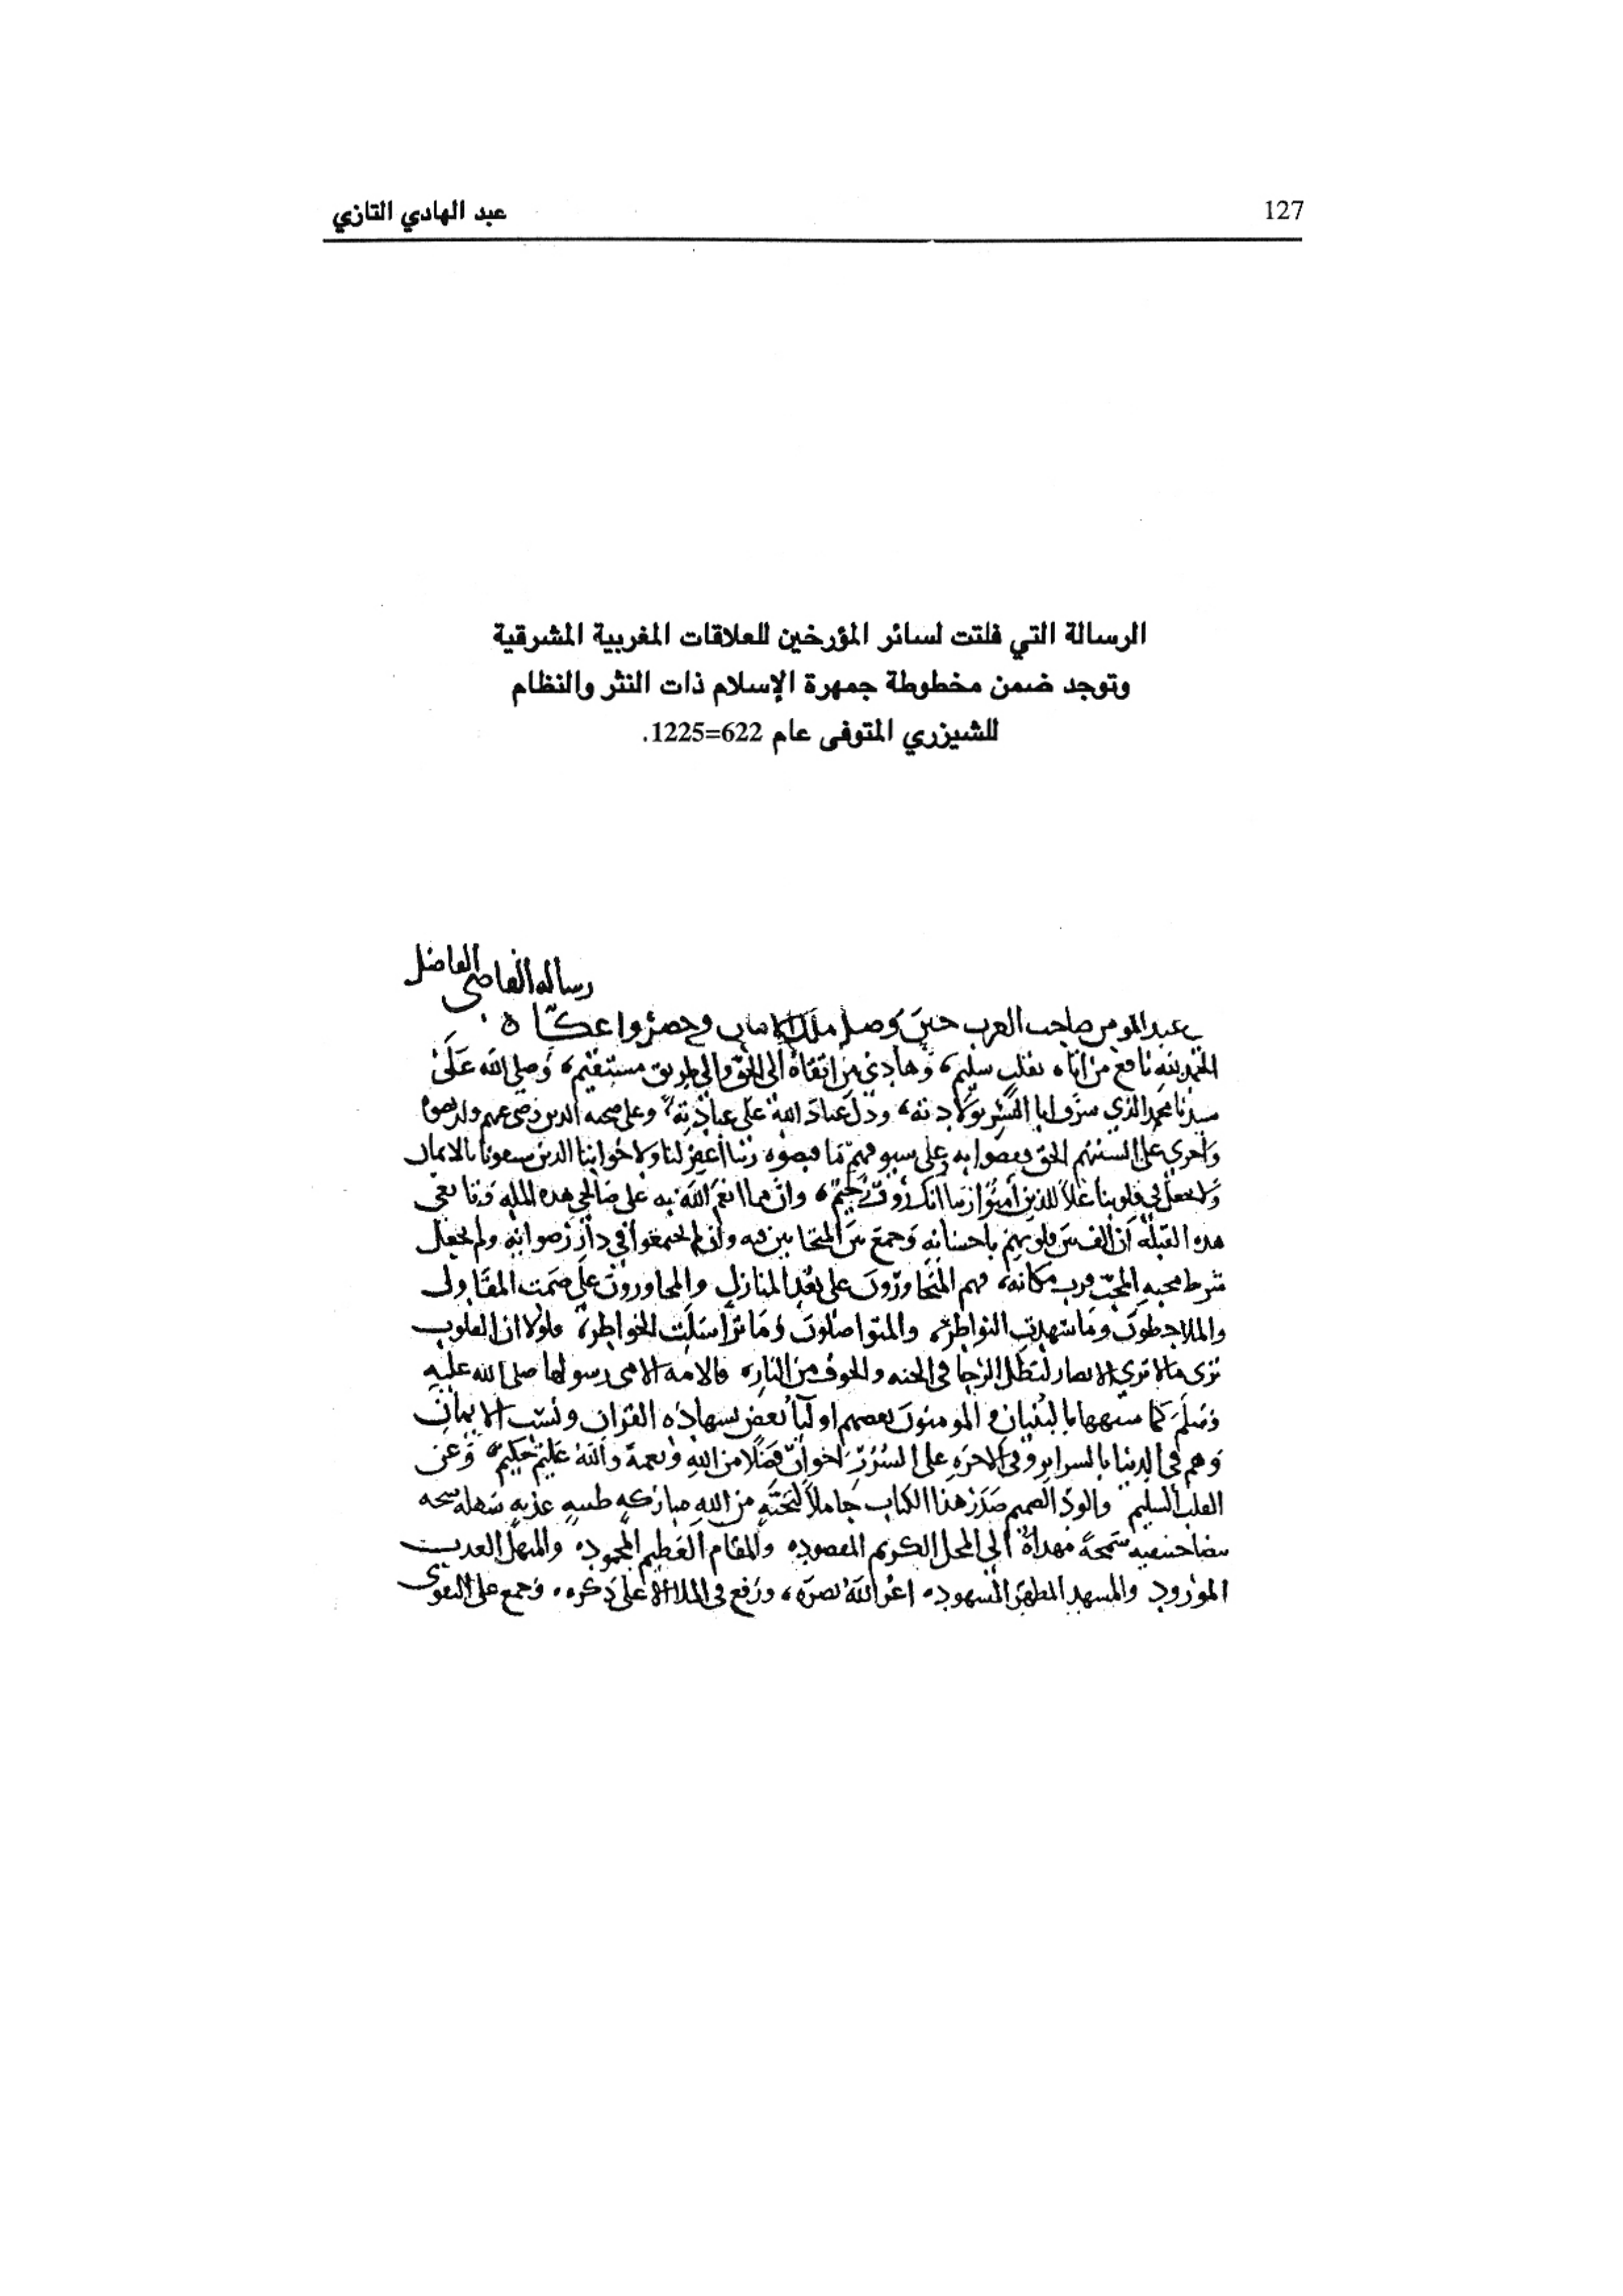 127
عبد الهادي التازي
الرسالة التي فلتت لسائر المؤرخين للعلاقات المغربية المشرقية
وتوجد ضمن مخطوطة جمهرة الإسلام ذات النثر والنظام
للشيزري المتوفى عام 622=1225.
رساله القاضي الفاضل
عبد المومن صاحب الغرب حين وصل ملك الالمان وحصروا عكا
الحمد لله نافع من اتاه بقلب سليم، وهادي من اتقاه الى الحق والى طريق مستقيم، وصلى الله على
سيدنا محمد الذي شرف ابا البشر بولادته، ودل عباد الله على عبادته، وعلى صحبه الذين رضى عنهم
واجرى على السنتهم الحق وعلى سيوفهم ربنا اغفر لنا ولاخواننا الذين سبقونا بالايمان
ولا تجعل في قلوبنا غلا للذين آمنوا ربنا انك رووف رحيم، وان مما انعم الله به على صالحي هذه المله
هذه القبلة ان الف بين قلوبهم باحسانه وجمع بين المتحابين فيه وان لم يجتمعوا في دار رضوانه ولم يجعل
شرط محبه المحب قرب مكانه، فهم المتجاورون على بعد المنازل والمحاورون على صمت المقاول
والملاحظون وما شهدت النواظر، والمتواصلون وما تراسلت الخواطر، ولولا ان القلوب
ترى ما لا ترى الابصار لبطل الرجا في الجنه والخوف من النار، فالامه الامى رسولها صلى الله عليه
وسلم كما شبهها بالبنيان والمومنون بعضهم اوليا بعض بشهاده القران ونسب الايمان
وهم في الدنيا بالسراير وفي الاخره على السرر اخوان فضلا من الله ونعمة والله عليم حكيم، وعن
القلب السليم والود الصميم صدر هذا الكتاب حاملا لتحيه من الله مباركه طيبه عذبه سهله
بيضا حنيفيه سمحة مهداة الى المحل الكريم المقصود، والمقام العظيم المحمود، والمنهل العذب
المورود والمشهد المطهر المشهود، اعز الله نصره، ورفع في الملا الاعلى ذكره، وجمع على التقوى